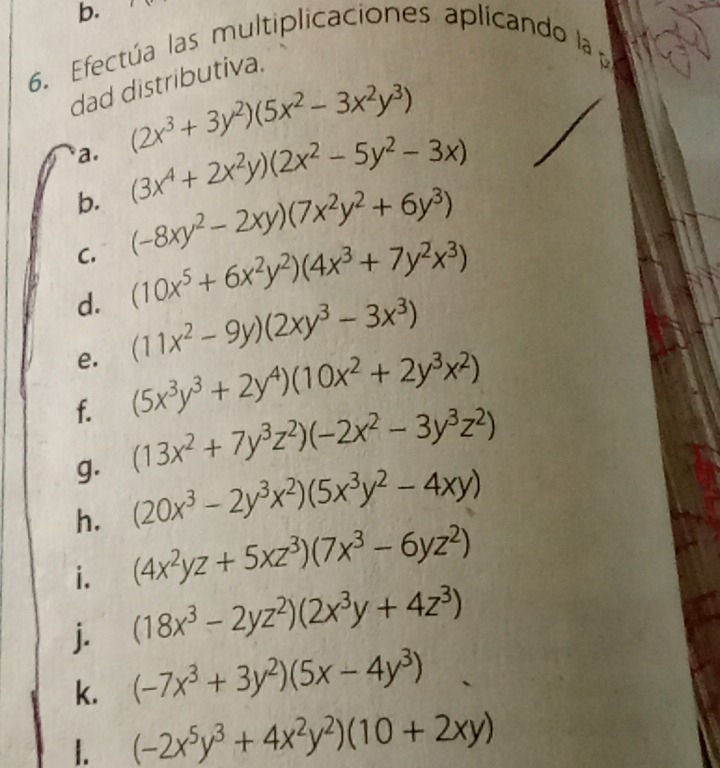 b.
6. Efectúa las multiplicaciones aplicando la
dad distributiva.
a. (2x³ + 3y²)(5x² – 3x²y³)
b. (3x⁴ + 2x²y)(2x² – 5y² – 3x)
c. (–8xy² – 2xy)(7x²y² + 6y³)
d. (10x⁵ + 6x²y²)(4x³ + 7y²x³)
e. (11x² – 9y)(2xy³ – 3x³)
f. (5x³y³ + 2y⁴)(10x² + 2y³x²)
g. (13x² + 7y³z²)(–2x² – 3y³z²)
h. (20x³ – 2y³x²)(5x³y² – 4xy)
i. (4x²yz + 5xz³)(7x³ – 6yz²)
j. (18x³ – 2yz²)(2x³y + 4z³)
k. (–7x³ + 3y²)(5x – 4y³)
l. (–2x⁵y³ + 4x²y²)(10 + 2xy)